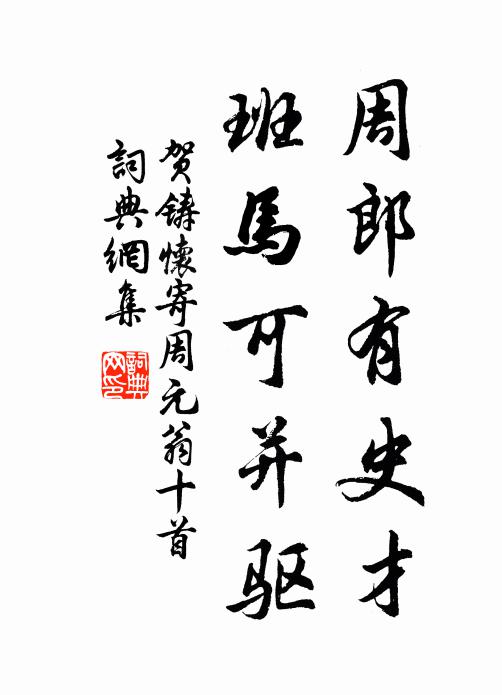 周郎有史才
班馬可并驱
贺鑄懷寄周元翁十首
詞典網集
詞典網印